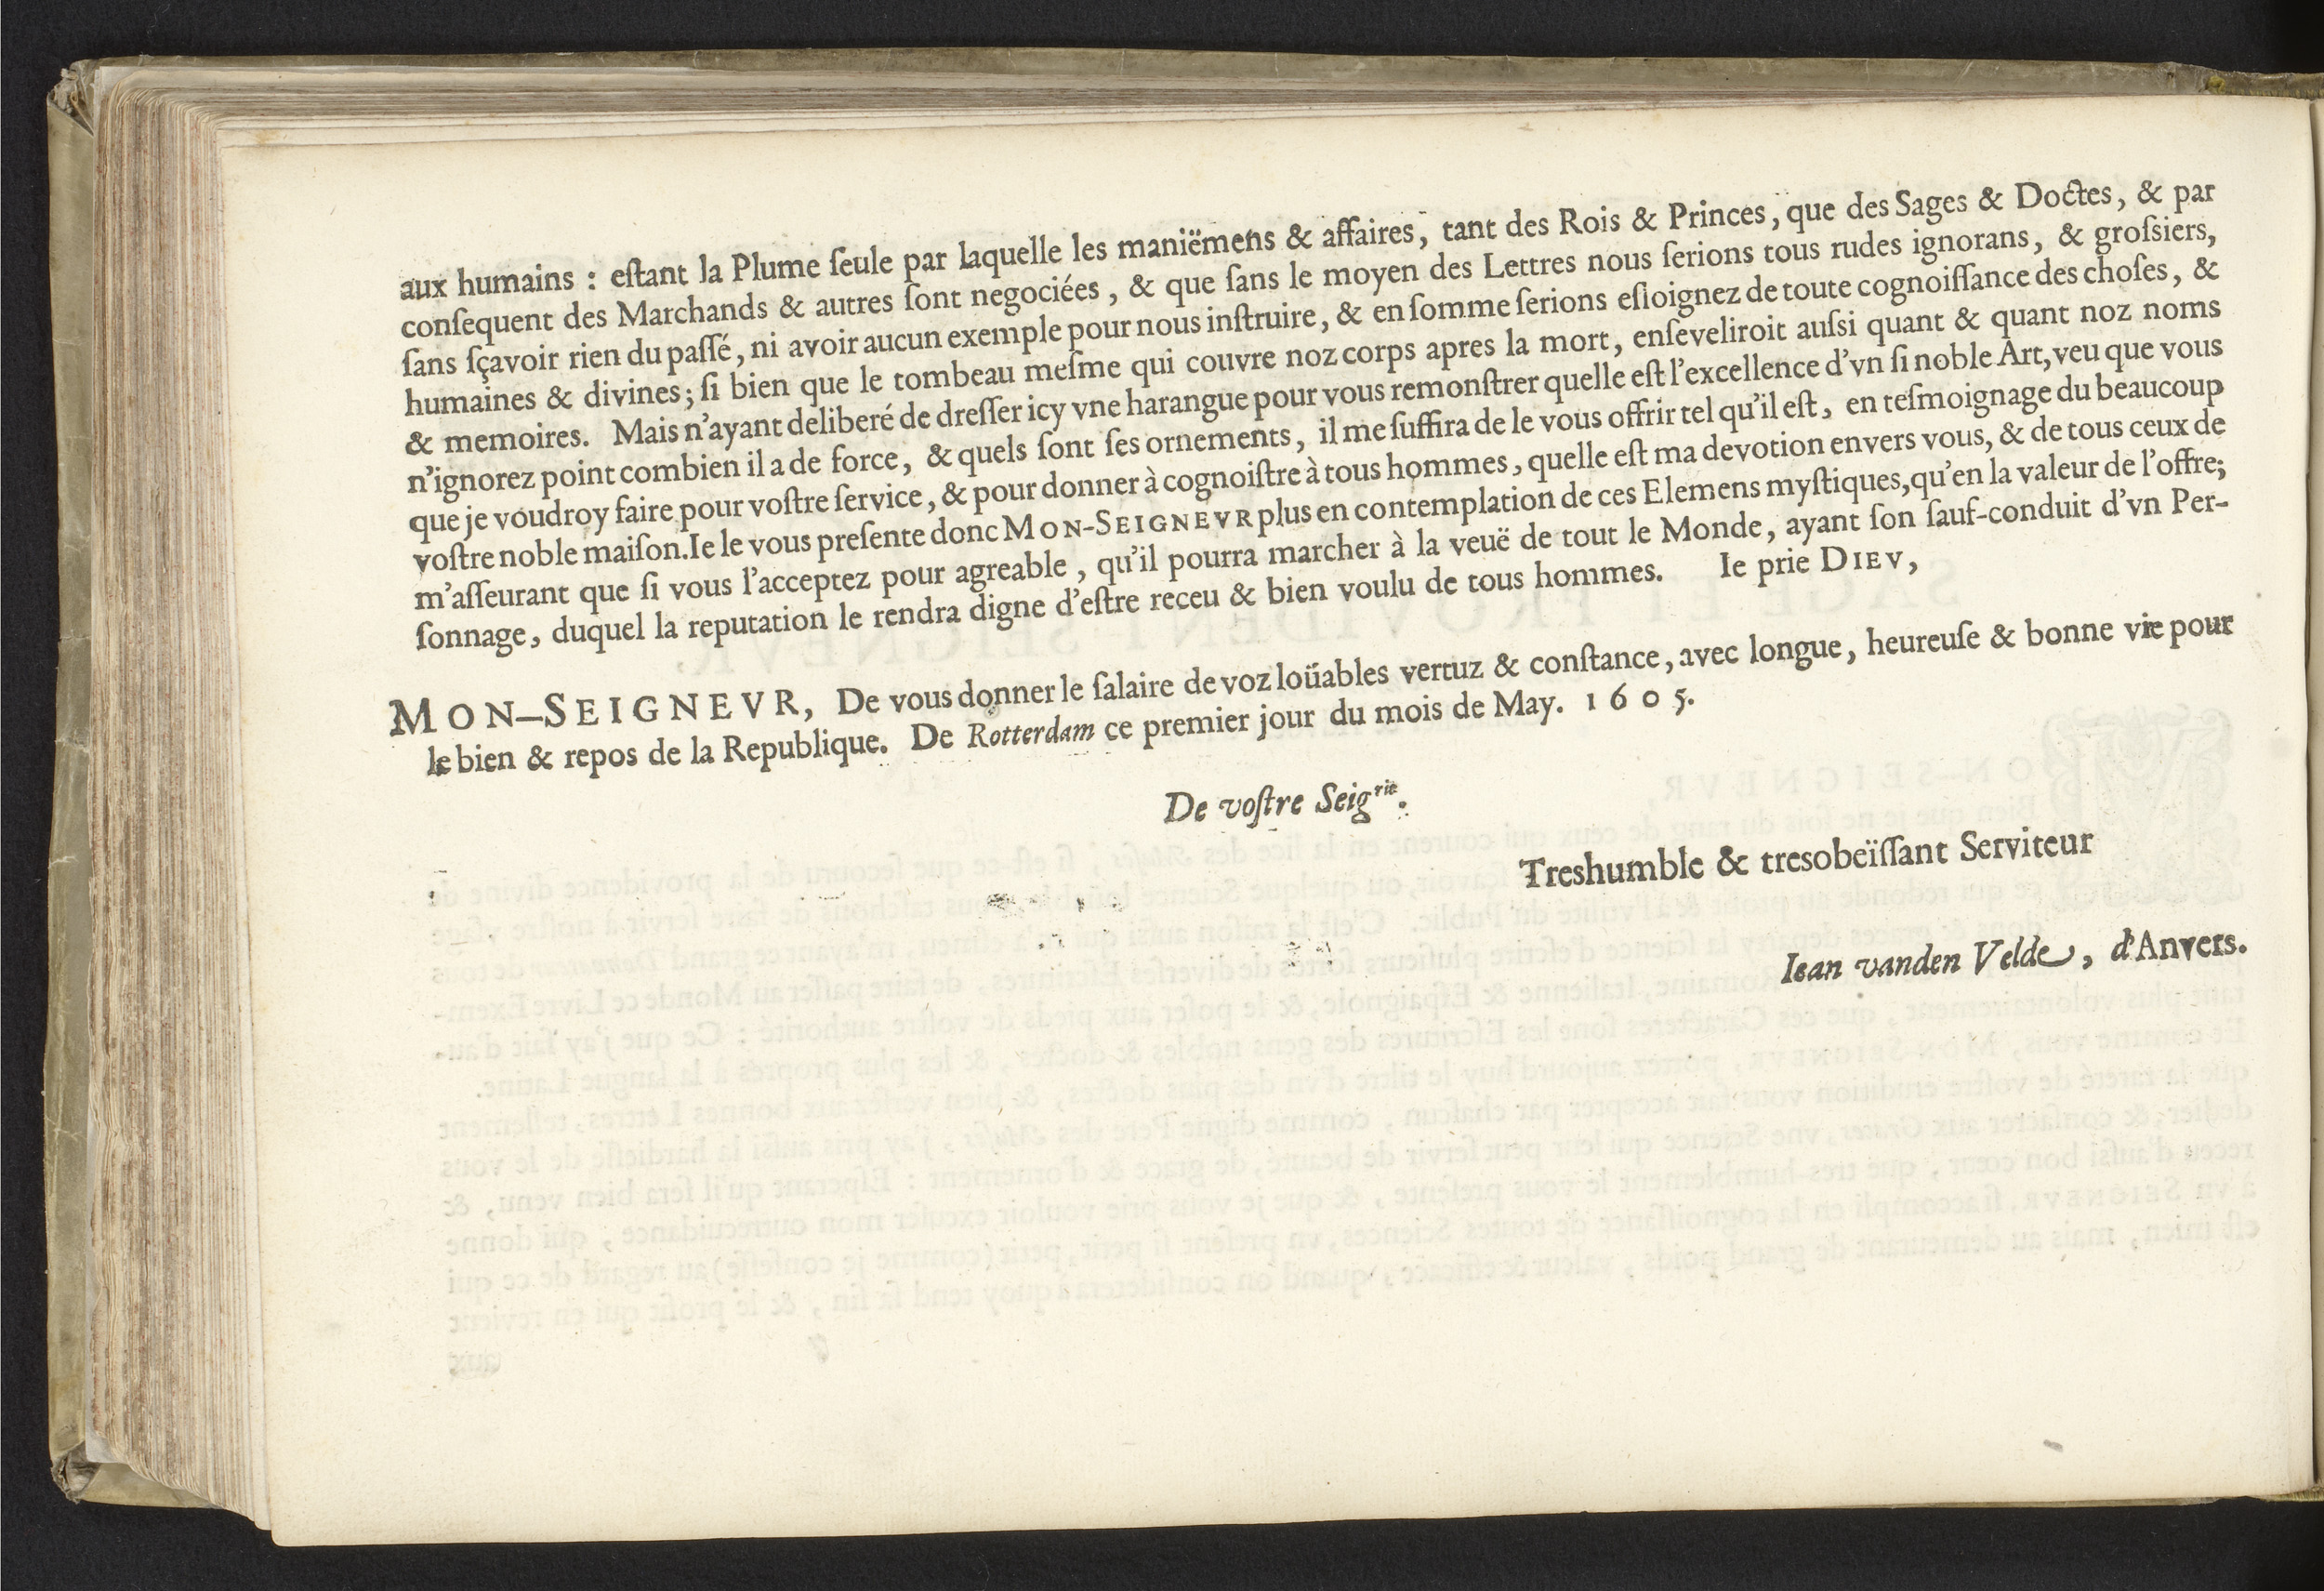 aux humains : eſtant la Plume ſeule par laquelle les maniëmens & affaires, tant des Rois & Princes, que des Sages & Doctes, & par
conſequent des Marchands & autres ſont negociées, & que ſans le moyen des Lettres nous ſerions tous rudes ignorans, & groſsiers,
ſans ſçavoir rien du paſſé, ni avoir aucun exemple pour nous inſtruire, & en ſomme ſerions eſloignez de toute cognoiſſance des choſes, &
humaines & divines; ſi bien que le tombeau meſme qui couvre noz corps apres la mort, enſeveliroit auſsi quant & quant noz noms
& memoires. Mais n'ayant deliberé de dreſſer icy vne harangue pour vous remonſtrer quelle eſt l'excellence d'vn ſi noble Art, veu que vous
n'ignorez point combien il a de force, & quels ſont ſes ornements, il me ſuffira de le vous offrir tel qu'il eſt, en teſmoignage du beaucoup
que je voudroy faire pour voſtre ſervice, & pour donner à cognoiſtre à tous hommes, quelle eſt ma devotion envers vous, & de tous ceux de
voſtre noble maiſon. Ie le vous preſente donc MON-SEIGNEVR plus en contemplation de ces Elemens myſtiques, qu'en la valeur de l'offre;
m'aſſeurant que ſi vous l'acceptez pour agreable, qu'il pourra marcher à la veuë de tout le Monde, ayant ſon ſauf-conduit d'vn Per-
ſonnage, duquel la reputation le rendra digne d'eſtre receu & bien voulu de tous hommes. Ie prie DIEV,
MON-SEIGNEVR, De vous donner le ſalaire de voz loüables vertuz & conſtance, avec longue, heureuſe & bonne vie pour
le bien & repos de la Republique. De Rotterdam ce premier jour du mois de May. 1605.
De voſtre Seigrie.
Treshumble & tresobeïſſant Serviteur
Iean vanden Velde, d'Anvers.